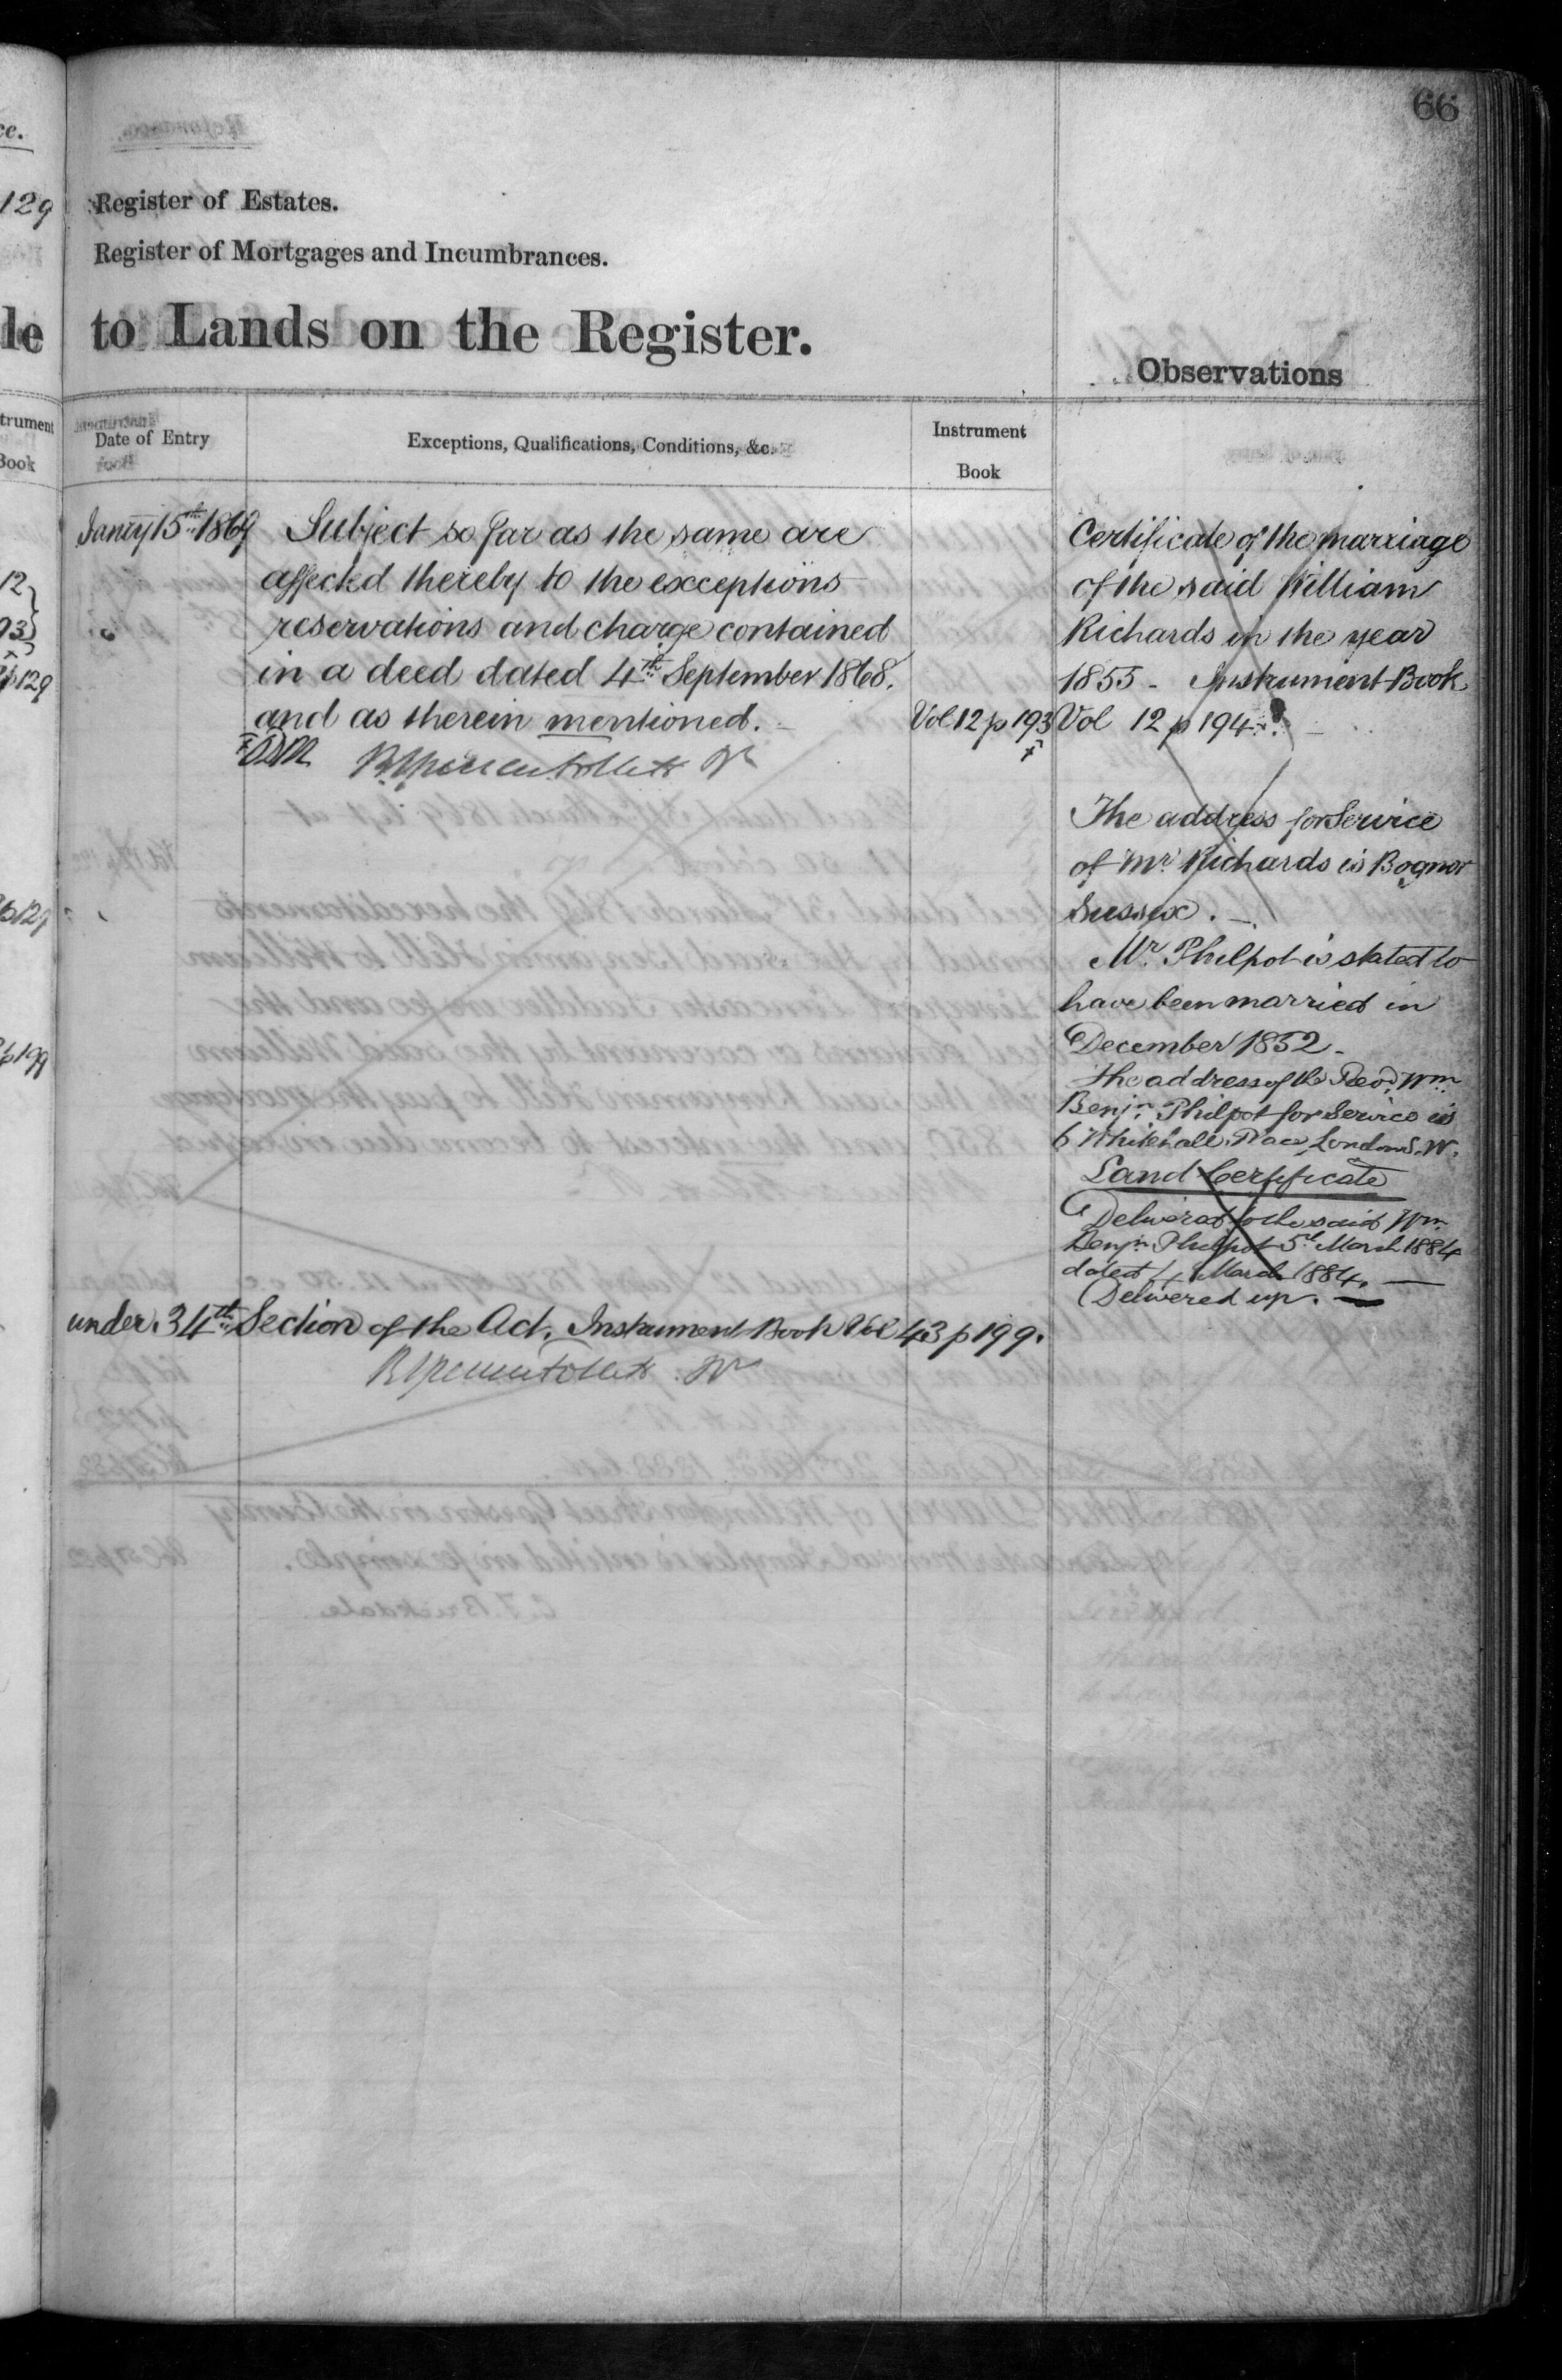 66
ce.
129
Register of Estates.
Register of Mortgages and Incumbrances.
le to Lands on the Register.
Observations
trument
Book
Date of Entry
Exceptions, Qualifications, Conditions, &c.
Instrument
Book
Janry 15th 1869 Subject so far as the same are
affected thereby to the exceptions
reservations and charge contained
in a deed dated 4th September 1868.
and as therein mentioned. Vol 12 p 193
12
93
p129
p129
p199
Certificate of the marriage
of the said William
Richards in the year
1855 - Instrument Book
Vol 12 p 194
The address for Service
of Mr Richards is Bognor
Sussex.
Mr. Philpot is stated to
have been married in
December 1852.
The address of the Revd. Wm
Benjn. Philpot for Service is
6 Whitehall Place, London S.W.
Land Certificate
Delivered to the said Wm
Benjn. Philpot 5th March 1884
dated 4 March 1884.
Delivered up.
under 34th Section of the Act, Instrument Book Vol 43 p 199.